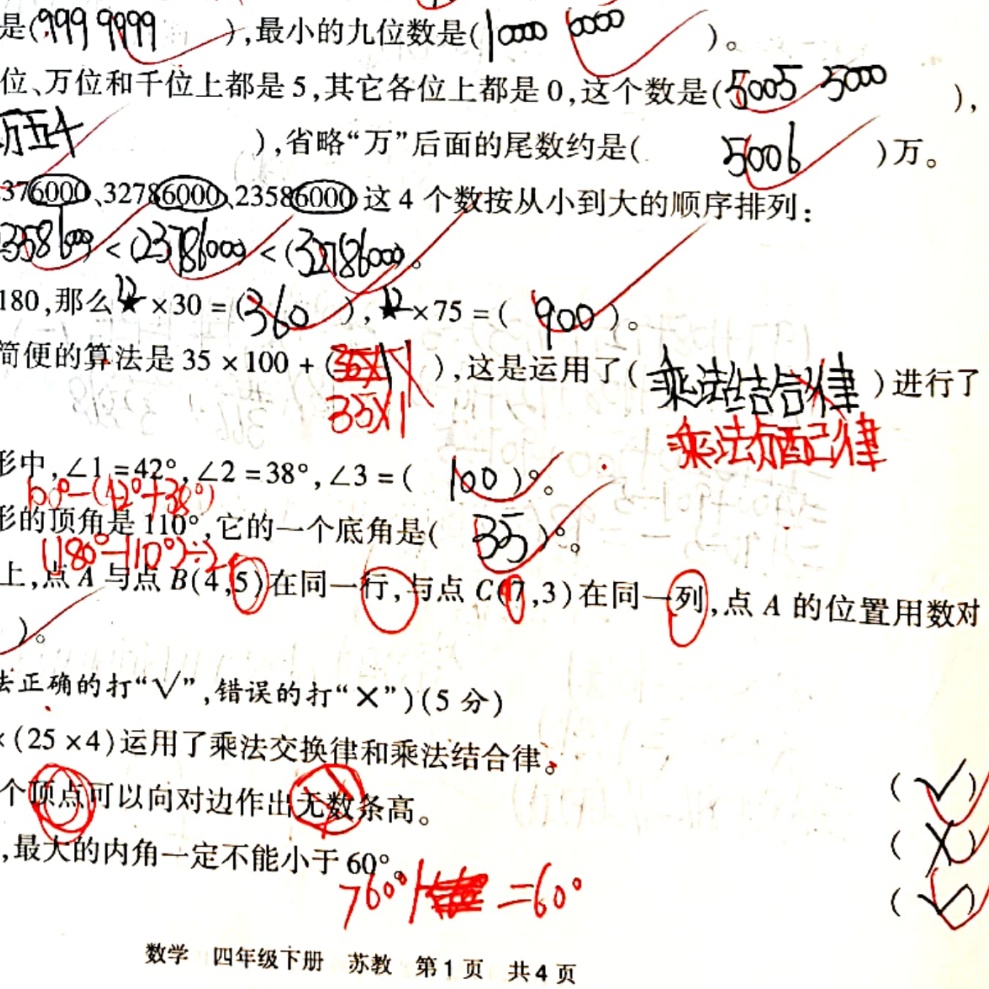 是(999 9999 ),最小的九位数是(10000 0000 )。
位、万位和千位上都是5,其它各位上都是0,这个数是(5005 5000 ),
万五千 ),省略“万”后面的尾数约是( 5006 )万。
376000、32786000、23586000这4个数按从小到大的顺序排列:
23586000<(23786000<(32786000)。
180,那么★×30=(360 ),★×75=( 900 )。
12 12
简便的算法是35×100+( ),这是运用了( 乘法结合律 )进行了
35×1 乘法分配律
形中,∠1=42°,∠2=38°,∠3=( 100 )°。
180°-(42°+38°)
形的顶角是110°,它的一个底角是( 35 )°。
(180°-110°)÷2
上,点A与点B(4,5)在同一行,与点C(7,3)在同一列,点A的位置用数对
)。
法正确的打“√”,错误的打“×”)(5分)
×(25×4)运用了乘法交换律和乘法结合律。 (√)
个顶点可以向对边作出无数条高。 (×)
,最大的内角一定不能小于60°。 (√)
>60° =60°
数学 四年级下册 苏教 第1页 共4页